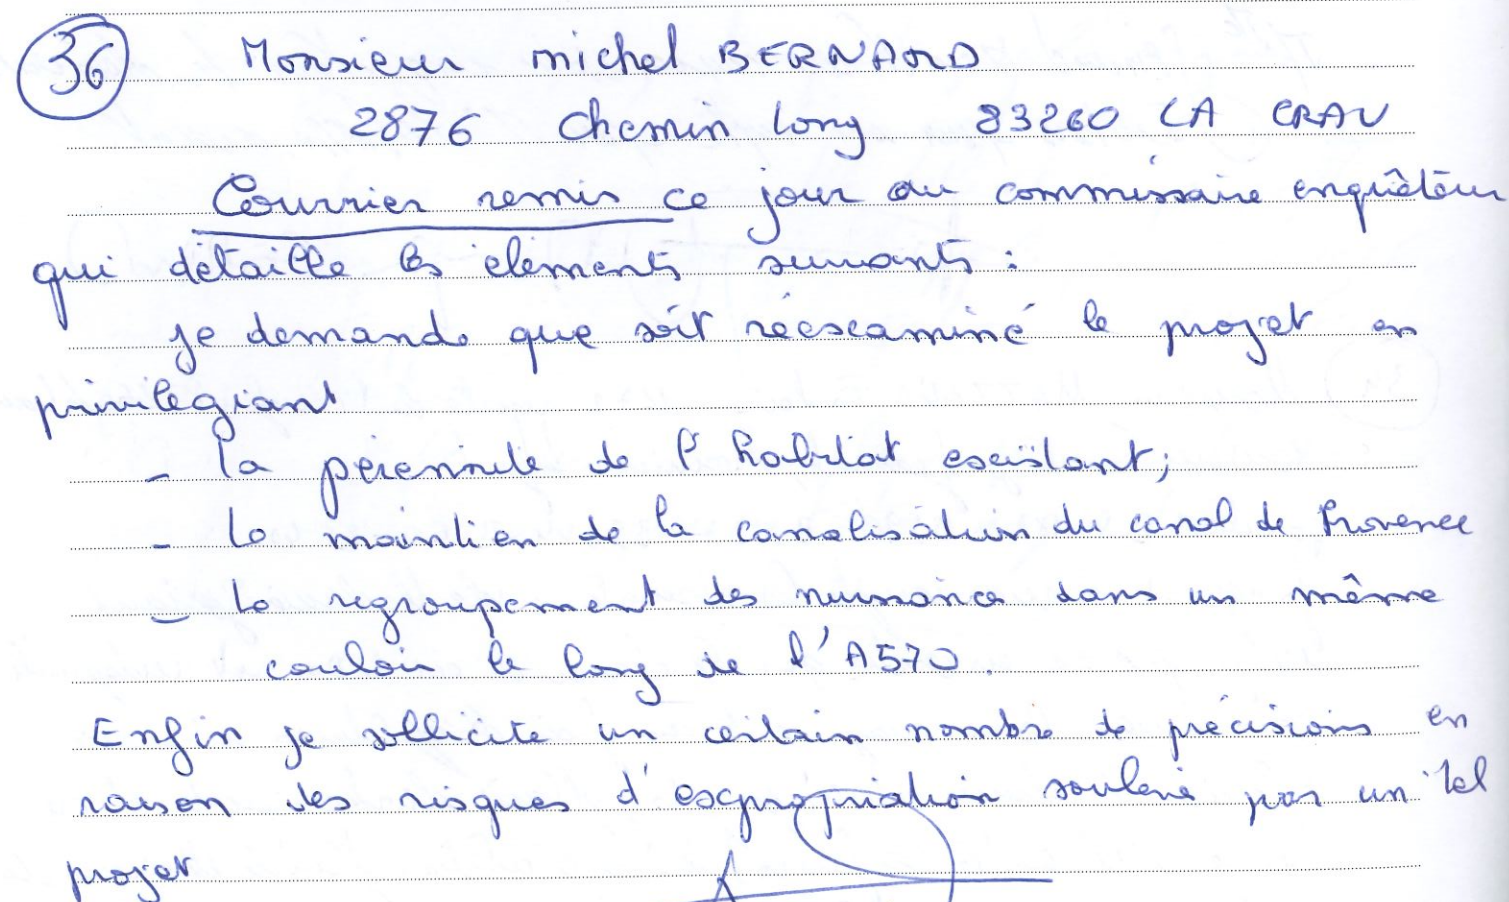 36 Monsieur michel BERNARD
2876 chemin long 83260 LA CRAU
Courrier remis ce jour au commissaire enquêteur
qui détaille les éléments suivants :
je demande que soit réexaminé le projet en
privilégiant
- la pérennité de l'habitat existant;
- le maintien de la canalisation du canal de Provence
- le regroupement des nuisance dans un même
couloir le long de l'A570.
Enfin je sollicite un certain nombre de précisions en
raison des risques d'expropriation soulevé par un tel
projet